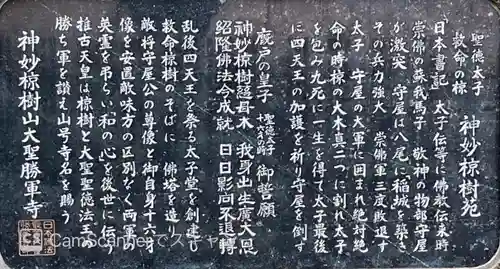 聖徳太子
救命の椋　神妙椋樹苑
「日本書記」太子伝等に佛教伝来時
崇佛の蘇我馬子　敬神の物部守屋
が激突、守屋は八尾に稲城を築き
その兵力強大　崇佛軍三度敗退す
太子　守屋の大軍に囲まれ絶対絶
命の時椋の大木真二つに割れ太子
を包み九死に一生を得て太子最後
に四天王の加護を祈り守屋を倒す
廐戸の皇子　聖徳太子十六才の時　御誓願
神妙椋樹超母木　我身出生廣大恩
紹隆佛法今成就　日日影向不退轉
乱後四天王を祭る太子堂を創建し
救命椋樹のそばに　佛塔を造り
敵将守屋公の尊像と御自身十六才
像を安置敵味方の区別なく両軍の
英霊を弔らい和の心を後世に伝う
推古天皇は椋樹と大聖聖徳法王の
勝ち軍を讃え山号寺名を賜う
神妙椋樹山大聖勝軍寺
CamScannerでスキャン